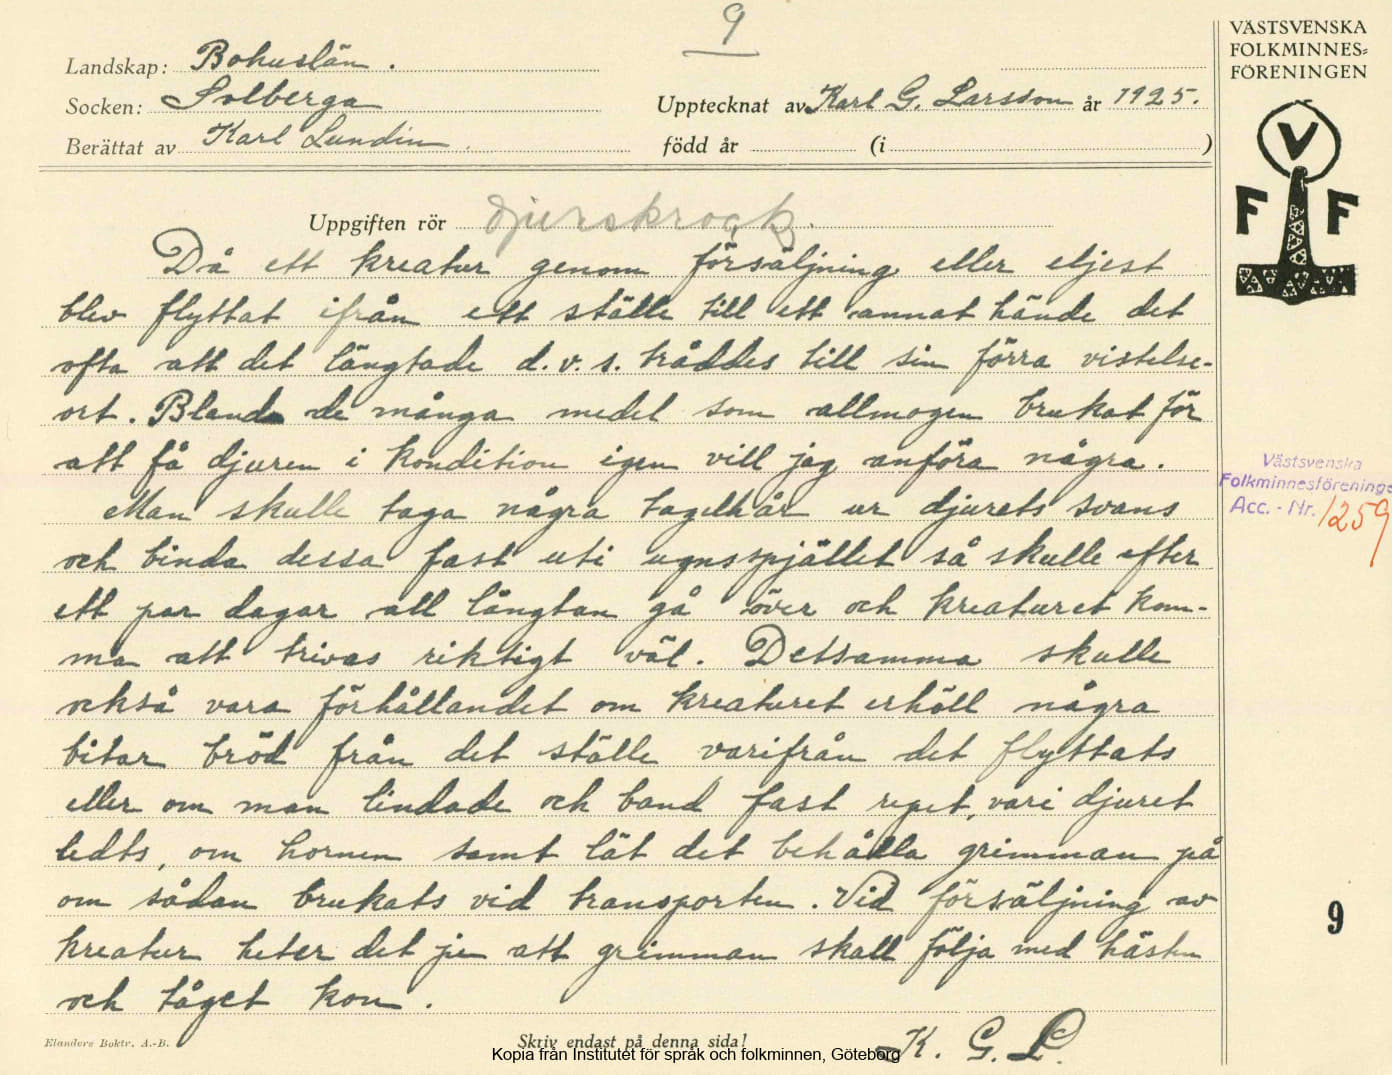 9
VÄSTSVENSKA
FOLKMINNES=
FÖRENINGEN
Landskap: Bohuslän.
Socken: Solberga
Upptecknat av Karl G. Larsson år 1925.
Berättat av Karl Lundin.
född år (i )
V
F F
Uppgiften rör djurskrock.
Då ett kreatur genom försäljning eller eljest
blev flyttat ifrån ett ställe till ett annat hände det
ofta att det längtade d.v.s. tråddes till sin förra vistelse-
ort. Bland de många medel som allmogen brukat för
att få djuren i kondition igen vill jag anföra några.
Man skulle taga några tagelhår ur djurets svans
och binda dessa fast uti ugnsspjället så skulle efter
ett par dagar all längtan gå över och kreaturet kom-
ma att trivas riktigt väl. Detsamma skulle
också vara förhållandet om kreaturet erhöll några
bitar bröd från det ställe varifrån det flyttats
eller om man lindade och band fast repet, vari djuret
ledts, om hornen samt lät det behålla grimman på
om sådan brukats vid transporten. Vid försäljning av
kreatur heter det ju att grimman skall följa med hästen
och tåget kon.
K. G. L.
Västsvenska
Folkminnesföreninge
Acc. - Nr. 1259
9
Elanders Boktr. A.-B.
Skriv endast på denna sida!
Kopia från Institutet för språk och folkminnen, Göteborg